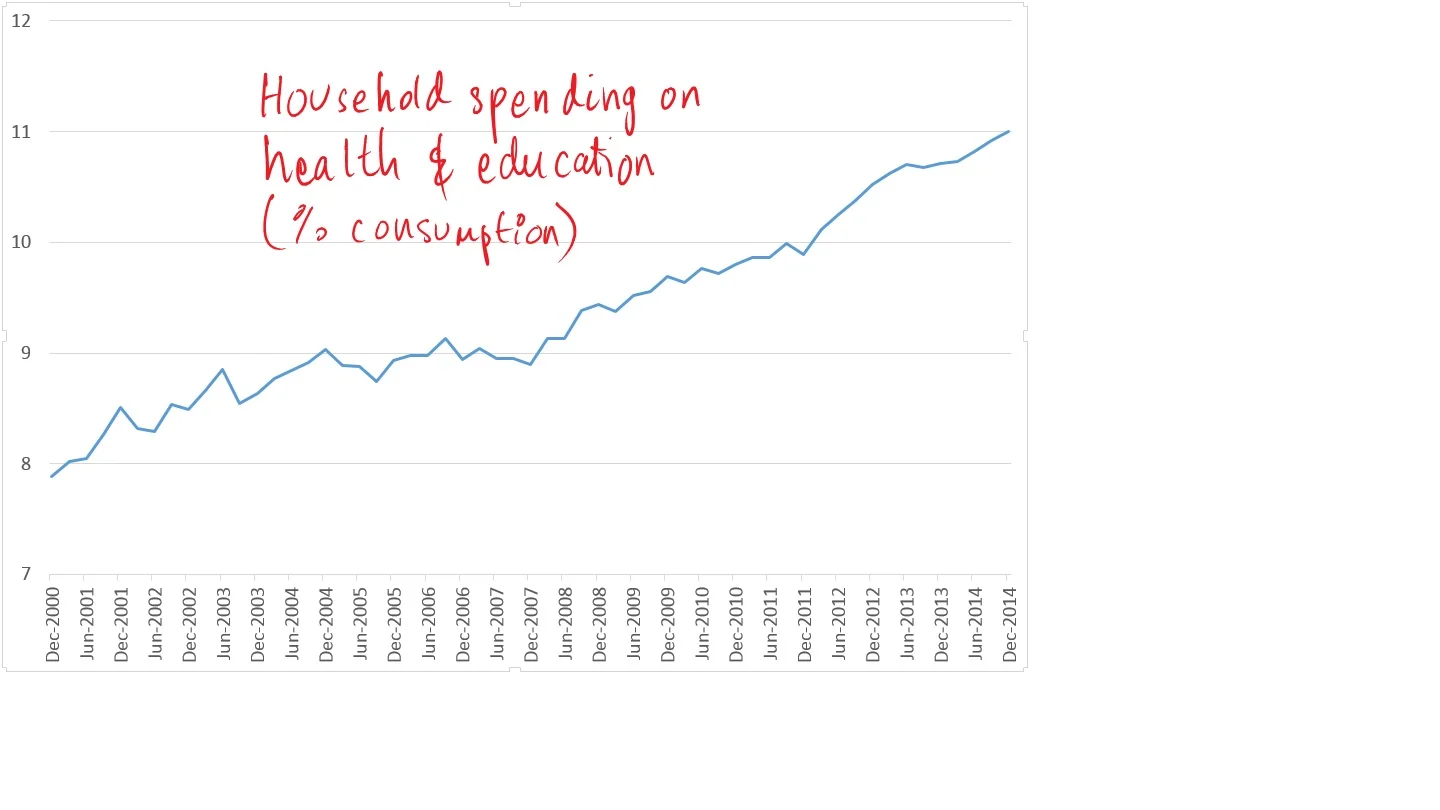 12
Household spending on
11
health & education
(% consumption)
10
9
8
7
Dec-2000 Jun-2001 Dec-2001 Jun-2002 Dec-2002 Jun-2003 Dec-2003 Jun-2004 Dec-2004 Jun-2005 Dec-2005 Jun-2006 Dec-2006 Jun-2007 Dec-2007 Jun-2008 Dec-2008 Jun-2009 Dec-2009 Jun-2010 Dec-2010 Jun-2011 Dec-2011 Jun-2012 Dec-2012 Jun-2013 Dec-2013 Jun-2014 Dec-2014